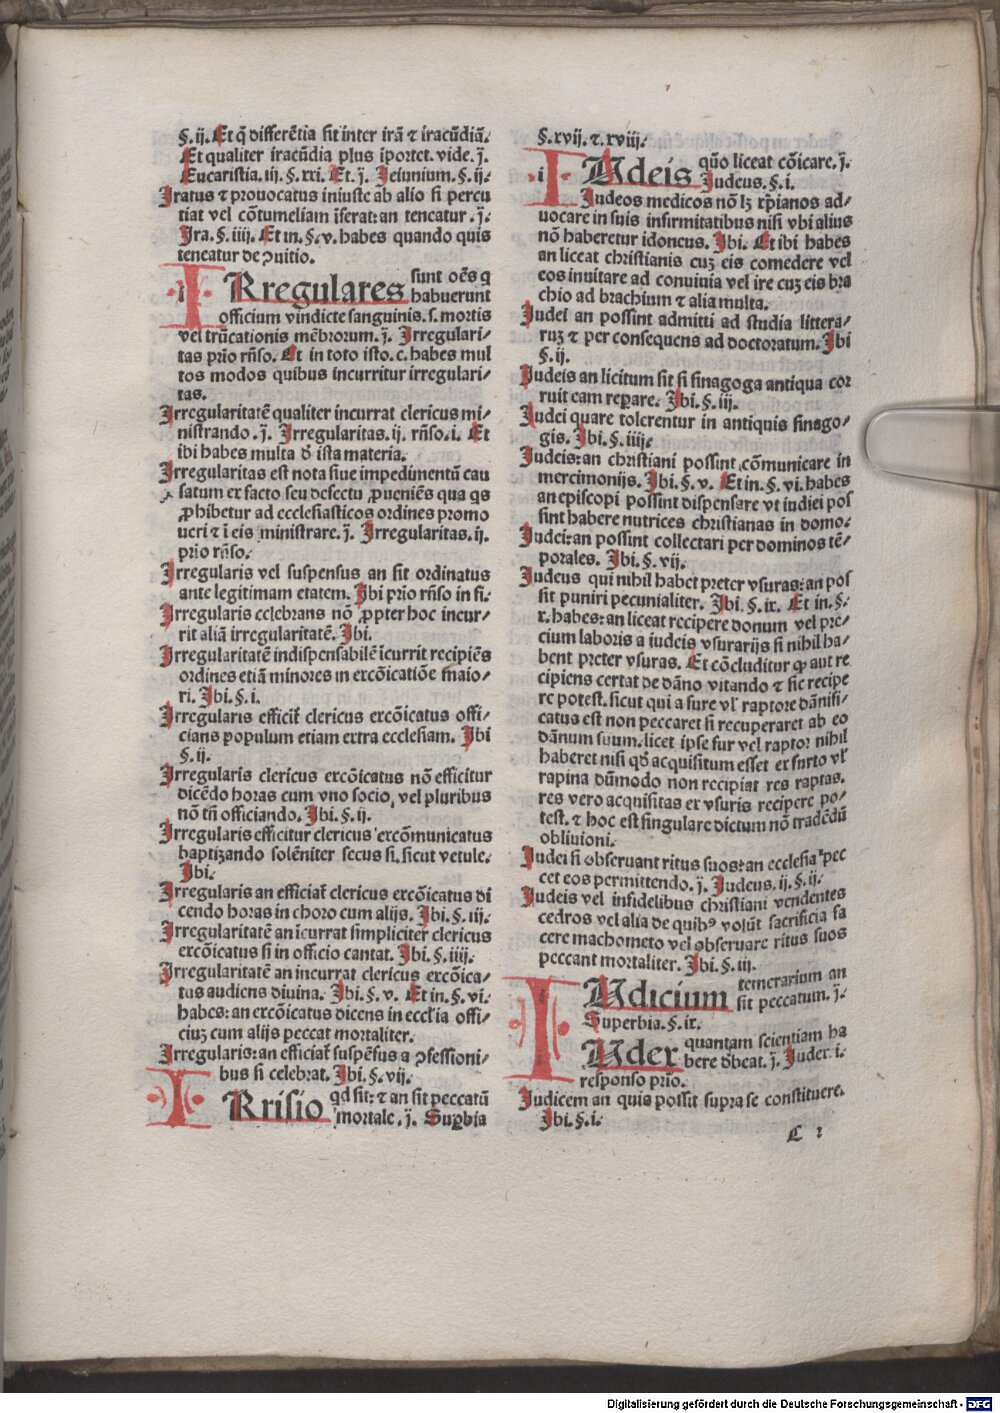 §. ij. Et q̄ differētia sit inter irā ⁊ iracūdiā.
Et qualiter iracūdia plus īportet. vide. j.
Eucaristia. iij. §. xxi. Et. j. Ieiunium. §. ij.
Iratus ⁊ prouocatus iniuste ab alio si percu
tiat vel cōtumeliam īferat: an teneatur. j.
Ira. §. iiij. Et in. §. v. habes quando quis
teneatur de ꝯuitio.
IRregulares sunt oēs q
habuerunt
officium vindicte sanguinis. s. mortis
vel trūcationis mēbrorum. j. Irregulari/
tas prio rn̄so. Et in toto isto. c. habes mul
tos modos quibus incurritur irregulari/
tas.
Irregularitatē qualiter incurrat clericus mi/
nistrando. j. Irregularitas. ij. rn̄so. i. Et
ibi habes multa ð ista materia.
Irregularitas est nota siue impedimentū cau
satum ex facto seu defectu ꝓueniēs qua qs
ꝓhibetur ad ecclesiasticos ordines promo
ueri ⁊ ī eis ministrare. j. Irregularitas. ij.
prio rn̄so.
Irregularis vel suspensus an sit ordinatus
ante legitimam etatem. Ibi prio rn̄so in fi.
Irregularis celebrans nō ꝓpter hoc incur/
rit aliā irregularitatē. Ibi.
Irregularitatē indispensabilē īcurrit recipiēs
ordines etiā minores in excōicatiōe maio/
ri. Ibi. §. i.
Irregularis efficit̄ clericus excōicatus offi/
cians populum etiam extra ecclesiam. Ibi
§. ij.
Irregularis clericus excōicatus nō efficitur
dicēdo horas cum vno socio, vel pluribus
nō tn̄ officiando. Ibi. §. ij.
Irregularis efficitur clericus excōmunicatus
baptizando solēniter secus si. sicut vetule.
Ibi.
Irregularis an efficiat̄ clericus excōicatus di
cendo horas in choro cum alijs. Ibi. §. iij.
Irregularitatē an īcurrat simpliciter clericus
excōicatus si in officio cantat. Ibi. §. iiij.
Irregularitatē an incurrat clericus excōica/
tus audiens diuina. Ibi. §. v. Et in. §. vi.
habes: an excōicatus dicens in eccl'ia offi/
ciuȝ cum alijs peccat mortaliter.
Irregularis: an efficiat̄ suspēsus a ꝯfessioni/
bus si celebrat. Ibi. §. vij.
IRrisio qd sit: ⁊ an sit peccatū
mortale. j. Suꝑbia
§. xvij. ⁊. xviij.
IUdeis quō liceat cōicare. j.
Iudeus. §. i.
Iudeos medicos nō lȝ xp̄ianos ad/
uocare in suis infirmitatibus nisi vbi alius
nō haberetur idoneus. Ibi. Et ibi habes
an liceat christianis cuȝ eis comedere vel
eos inuitare ad conuiuia vel ire cuȝ eis bra
chio ad brachium ⁊ alia multa.
Iudei an possint admitti ad studia littera/
ruȝ ⁊ per consequens ad doctoratum. Ibi
§. ij.
Iudeis an licitum sit si sinagoga antiqua cor
ruit eam reꝑare. Ibi. §. iij.
Iudei quare tolerentur in antiquis sinago/
gis. Ibi. §. iiij.
Iudeis: an christiani possint cōmunicare in
mercimonijs. Ibi. §. v. Et in. §. vi. habes
an episcopi possint dispensare vt iudiei pos
sint habere nutrices christianas in domo.
Iudei: an possint collectari per dominos tē/
porales. Ibi. §. vij.
Iudeus qui nihil habet preter vsuras: an pos
sit puniri pecunialiter. Ibi. §. ix. Et in. §.
x. habes: an liceat recipere donum vel pre/
cium laboris a iudeis vsurarijs si nihil ha/
bent preter vsuras. Et cōcluditur ꝙ aut re
cipiens certat de dāno vitando ⁊ sic recipe
re potest. sicut qui a fure vl' raptore dānifi/
catus est non peccaret si recuperaret ab eo
dānum suum. licet ipse fur vel raptor nihil
haberet nisi qð acquisitum esset ex furto vl'
rapina dūmodo non recipiat res raptas.
res vero acquisitas ex vsuris recipere po/
test. ⁊ hoc est singulare dictum nō tradēdū
obliuioni.
Iudei si obseruant ritus suos: an ecclesia pec
cet eos permittendo. j. Iudeus. ij. §. ij.
Iudeis vel infidelibus christiani vendentes
cedros vel alia de quibꝰ volūt sacrificia fa
cere machometo vel obseruare ritus suos
peccant mortaliter. Ibi. §. iij.
IUdicium temerarium an
sit peccatum. j.
Superbia. §. ix.
IUdex quantam scientiam ha
bere ðbeat. j. Iudex. i.
responso prio.
Iudicem an quis possit supra se constituere.
Ibi. §. i.
Digitalisierung gefördert durch die Deutsche Forschungsgemeinschaft - DFG